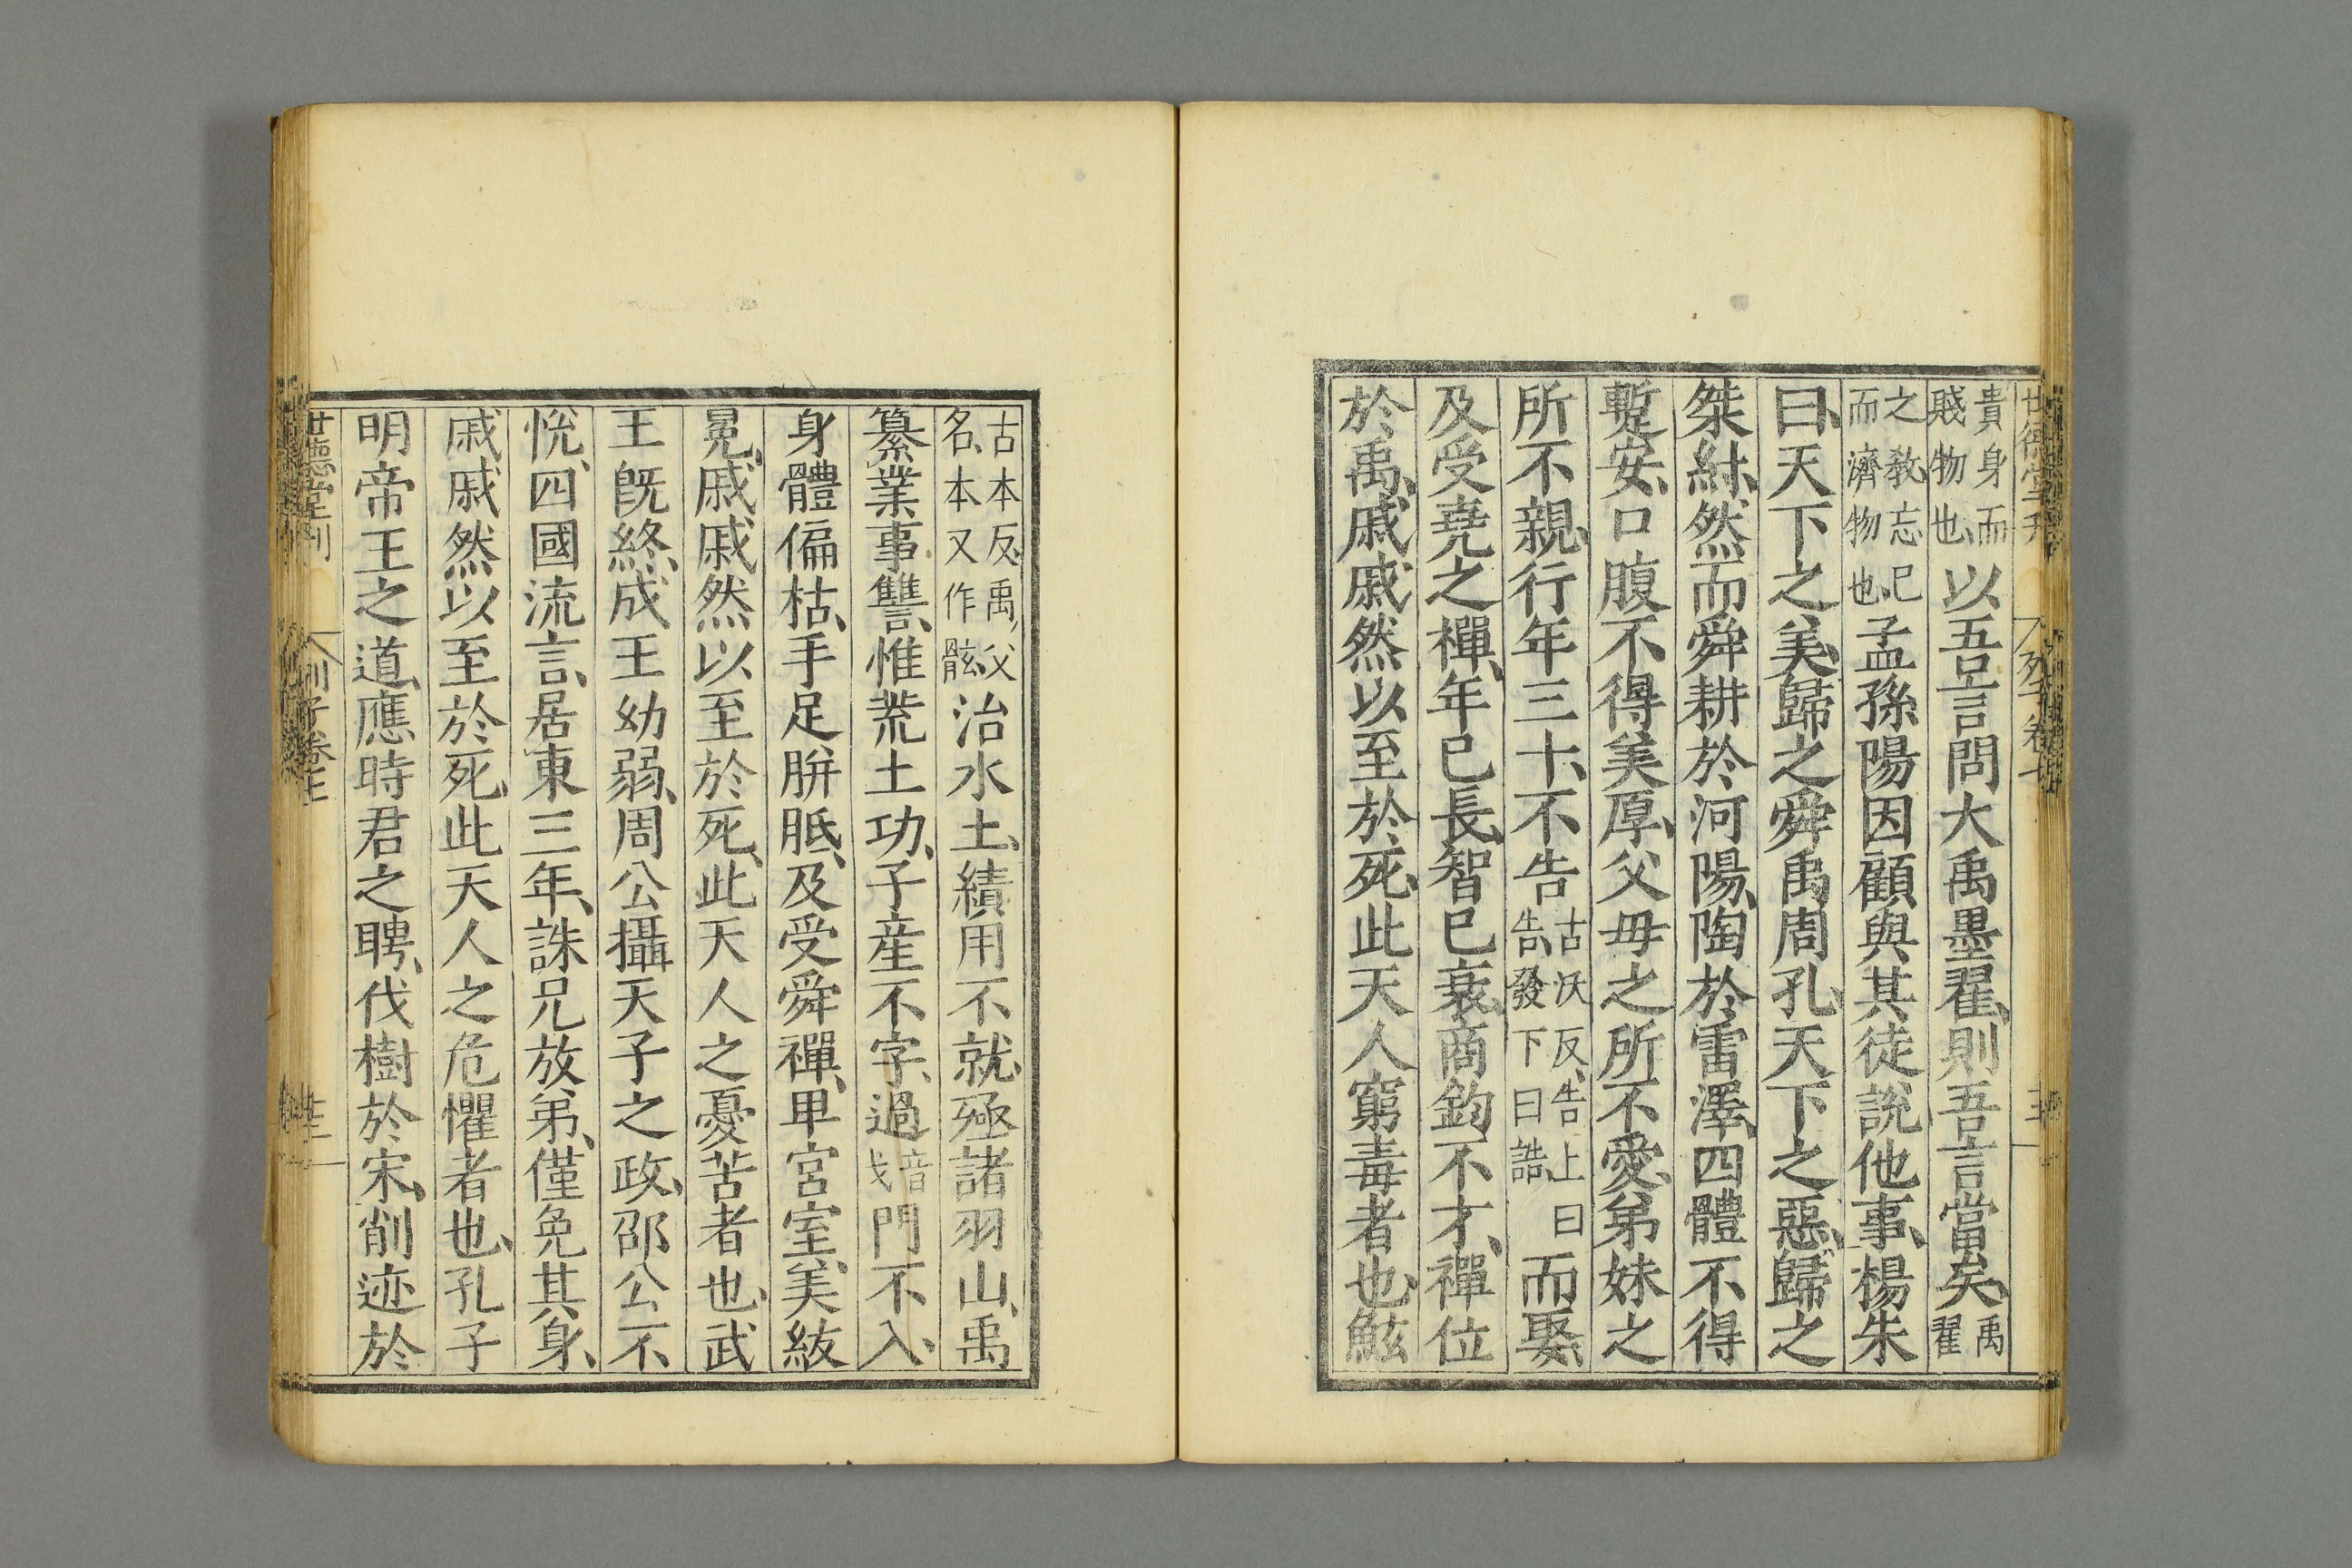 貴身而賤物也以吾言問大禹墨翟則吾言當矣禹翟
之敎忘已而濟物也孟孫陽因顧與其徒說他事楊朱
曰天下之美歸之舜禹周孔天下之惡歸之
桀紂然而舜耕於河陽陶於雷澤四體不得
蹔安口腹不得美厚父母之所不愛弟妹之
所不親行年三十不告古沃反告上曰告發下曰誥而娶
及受堯之禪年已長智已衰商鈞不才禪位
於禹戚戚然以至於死此天人窮毒者也鮌
古本反禹父名本又作骸治水土績用不就殛諸羽山禹
纂業事讐惟荒土功子産不字過音戈門不入
身體偏枯手足胼胝及受舜禪卑宮室美紱
冕戚戚然以至於死此天人之憂苦者也武
王旣終成王幼弱周公攝天子之政邵公不
恱四國流言居東三年誅兄放弟僅免其身
戚戚然以至於死此天人之危懼者也孔子
明帝王之道應時君之聘伐樹於宋削迹於
世德堂刊
列子卷七